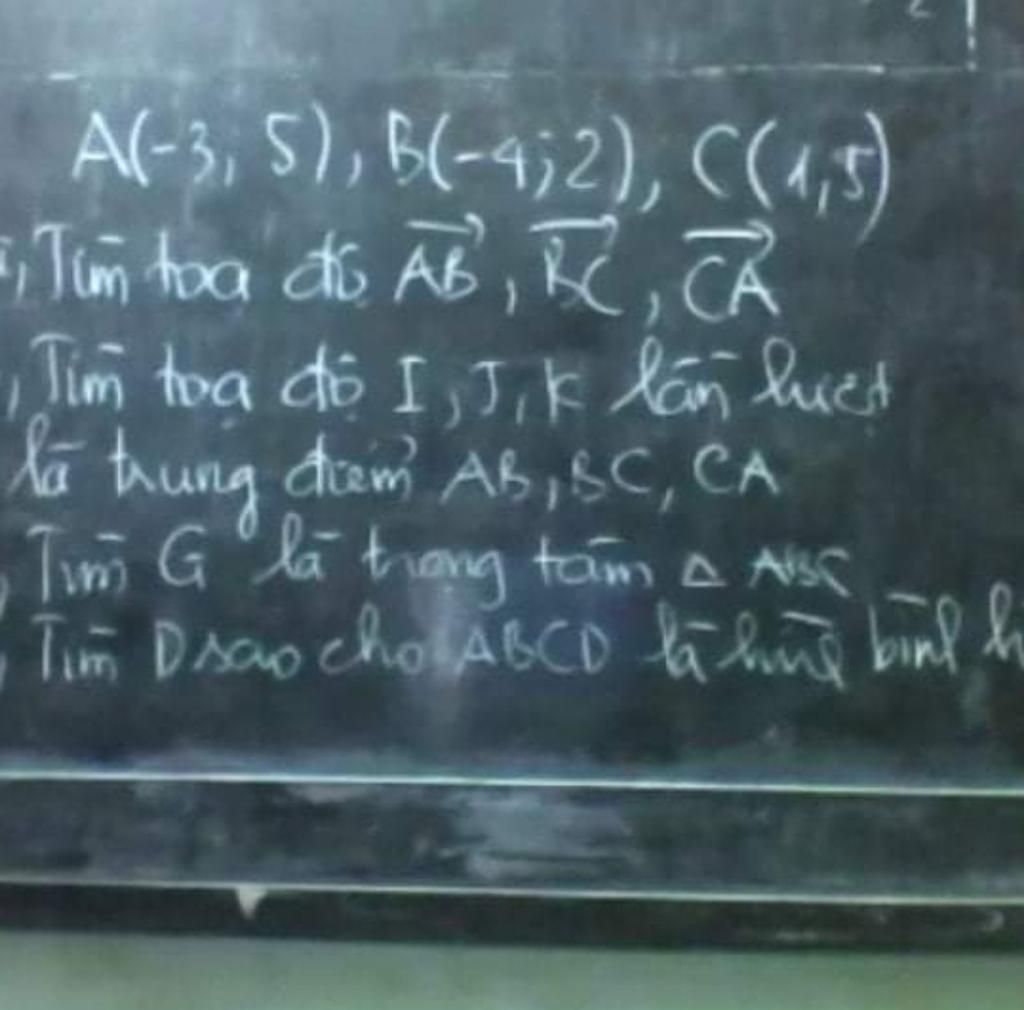 A(-3, 5), B(-4; 2), C(1, 5)
, Tìm toạ độ AB, BC, CA
, Tìm toạ độ I, J, K lần lượt
là trung điểm AB, BC, CA
, Tìm G là trọng tâm △ ABC
, Tìm D sao cho ABCD là hình bình h